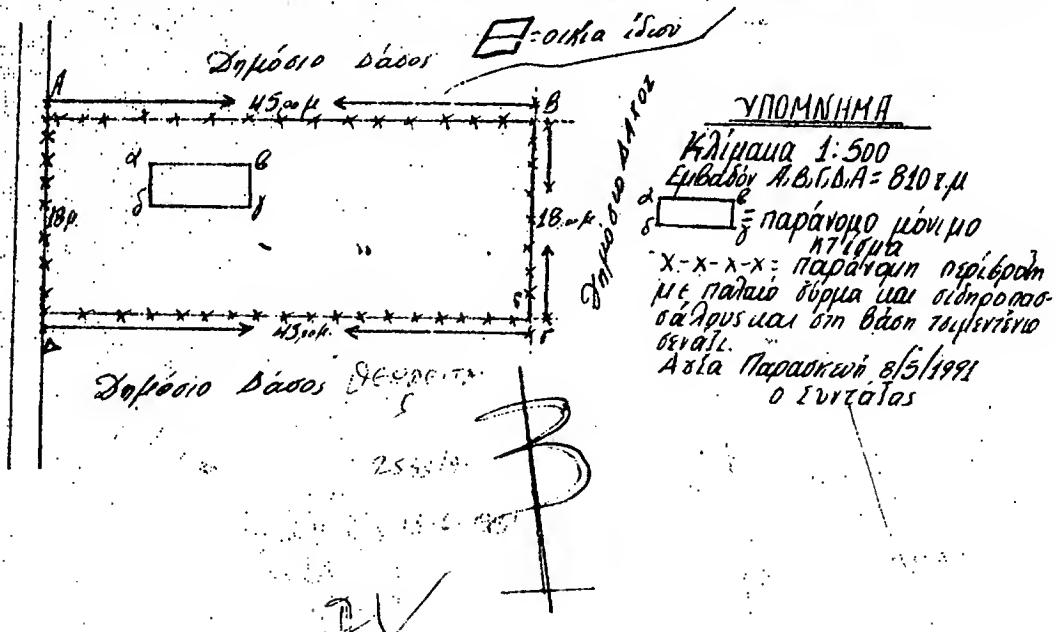 =οικία ίδιου
Δημόσιο Δάσος
Α
45,00μ
Β
Δημόσιο ΔΑΣΟΣ
α
β
δ
γ
18μ.
18,00μ.
45,00μ.
Γ
Δ
Δημόσιο Δάσος
Β
ΥΠΟΜΝΗΜΑ
Κλίμακα 1:500
Εμβαδόν Α.Β.Γ.Δ.Α = 810 τ.μ
α
β
δ
γ
= παράνομο μόνιμο
κτίσμα
Χ-Χ-Χ-Χ= παράνομη περίφραξη
με παλαιό σύρμα και σιδηροπασ-
σάλους και στη βάση τσιμεντένιο
σενάζι.
Αγία Παρασκευή 8/5/1991
Ο Συντάξας